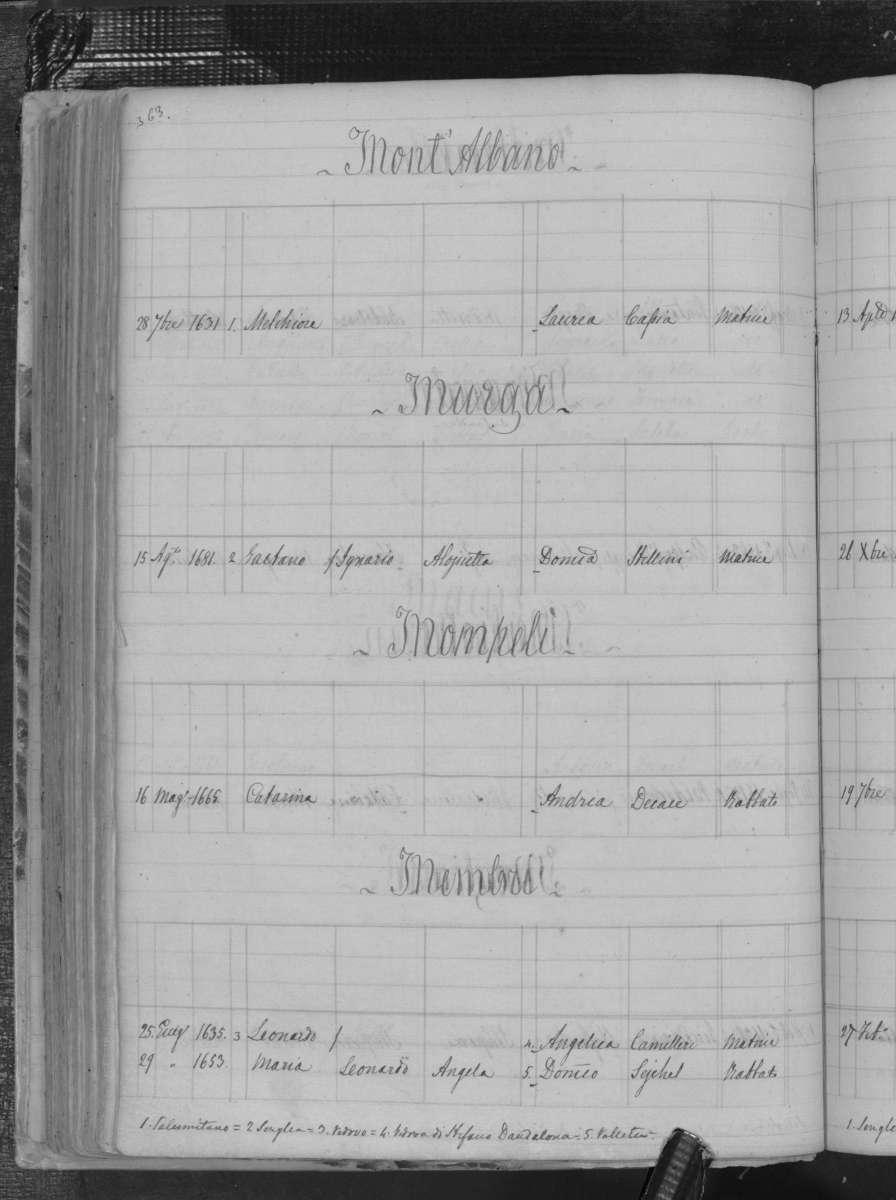 363.
~ Mont'Albano ~
28 7bre 1631 1. Melchiore Laurea Cassia Matrice 13 Aple
~ Murga ~
15 Agto 1681. 2 Gaetano f Ignazio Aloisetta Domca Stellini Matrice 26 Xbre
~ Mompeli ~
16 Magº 1665 Catarina Andrea Decace Rabbato 19 7bre
~ Membrè ~
25. 1635. 3 Leonardo f 4. Angelica Camilleri Matrice 27
29 " 1653. Maria Leonardo Angela 5. Domco Sejchel Rabbato
1. Palermitano = 2 Senglea = 3. Vedovo = 4. Vedova di Stefano Dandalona = 5. Valletta
1. Senglea